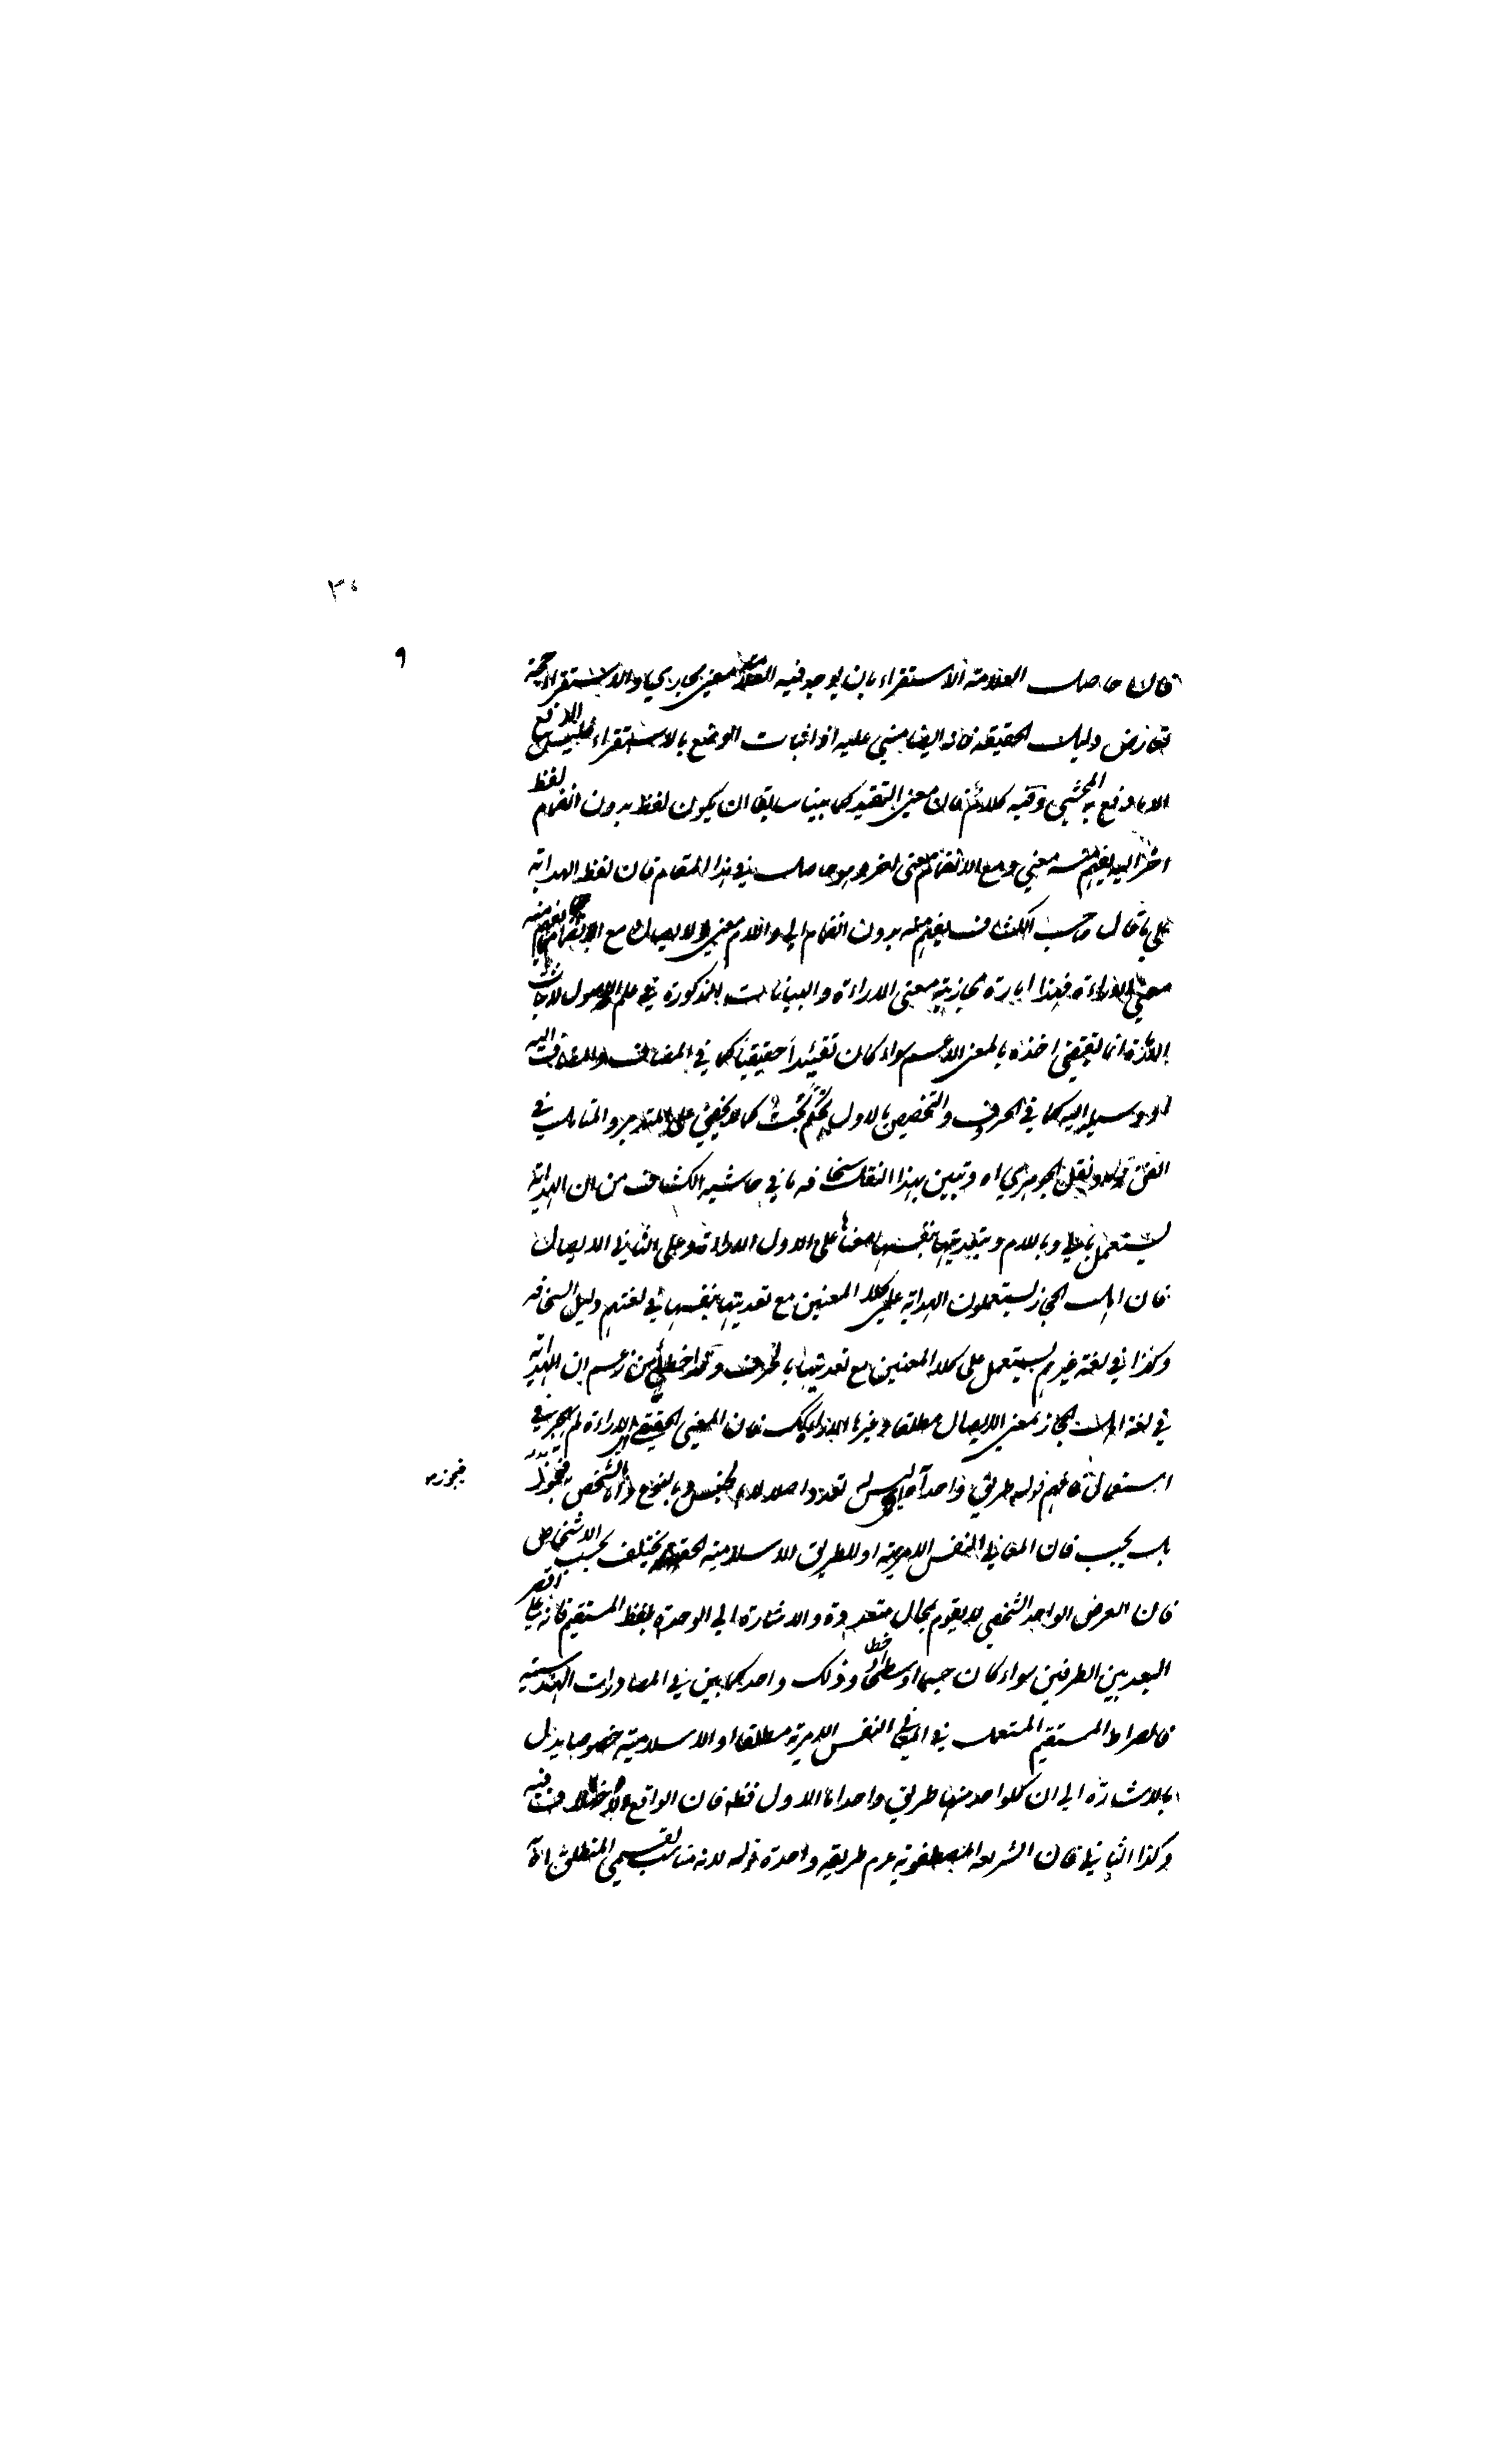 ٣٠
٩
فالن حاصل العلامة الاستقراء بان يوجد فيه العلامة معنى مجازي والاستقراء حجة
تعارض دليل الحقيقة فانه ايضا مبني عليه اذ اثبات الوضع بالاستقراء فليس الدفع
الا ما دفع به المحشي وفيه كلام فان معنى التقييد كما بينا سابقا ان يكون لفظ بدون انضمام لفظ
اخر اليه يفهم منه معنى ومع الانضمام معنى اخر وهو حاصل في هذا المقام فان لفظ الهداية
على ما قال صاحب الكشاف يفهم منه بدون انضمام الى واللام معنى الايصال مع الانضمام يفهم منه
معنى الاراءة فهذا امارة مجازية معنى الاراءة والبيانات المذكورة في علم الاصول لاثبات
الامارة انما تقتضي اخذه بالمعنى الاعم سواء كان تقييدا حقيقيا كما في المضاف والمضاف اليه
او وسيلة اليه كما في الحرف والتخصيص بالاول تحكم بحت كما لا يخفى على المتدبر والمتامل في
الفن قوله ونقل الجوهري اه وتبين بهذا النقل سخافة ما في حاشية الكشاف من ان الهداية
يستعمل بالى وباللام وبتعديتها بنفسها معناها على الاول الاراءة وعلى الثاني الايصال
فان اهل الحجاز يستعملون الهداية على كلا المعنيين مع تعديتها بنفسها في لغتهم دليل السخافة
وكذا في لغة غيرهم يستعمل على كلا المعنيين مع تعديتها بالحرف وقد اخطأ من زعم ان الهداية
في لغة اهل الحجاز بمعنى الايصال مطلقا وغيرها فان المعنى الحقيقي الاراءة لم يهجر في
استعمالاتهم قوله طريق واحد آه ليس له تعدد اصلا لا بالجنس ولا بالنوع واما الشخص فيجوز
فيجوز
بل يجب فان المعاني النفس الامرية او الطريق الاسلامية الحقة يختلف بحسب الاشخاص
فان العرض الواحد الشخصي لا يقوم بمحال متعددة والاشارة الى الوحدة بلفظ المستقيم فانه على اقصر
البعد بين الطرفين سواء كان جسما او سطحا او خطا وذلك واحد كما بين في المصادرات الهندسية
فالصراط المستقيم المستعمل في المعاني النفس الامرية مطلقا او الاسلامية خصوصا يدل
بالاشارة الى ان كل واحد منها طريق واحد اما الاول فظ فان الواقع لا اختلاف فيه
وكذا الثاني فان الشريعة المصطفوية عم طريقة واحدة قوله لانه مناسب لقسمي المنطق اه